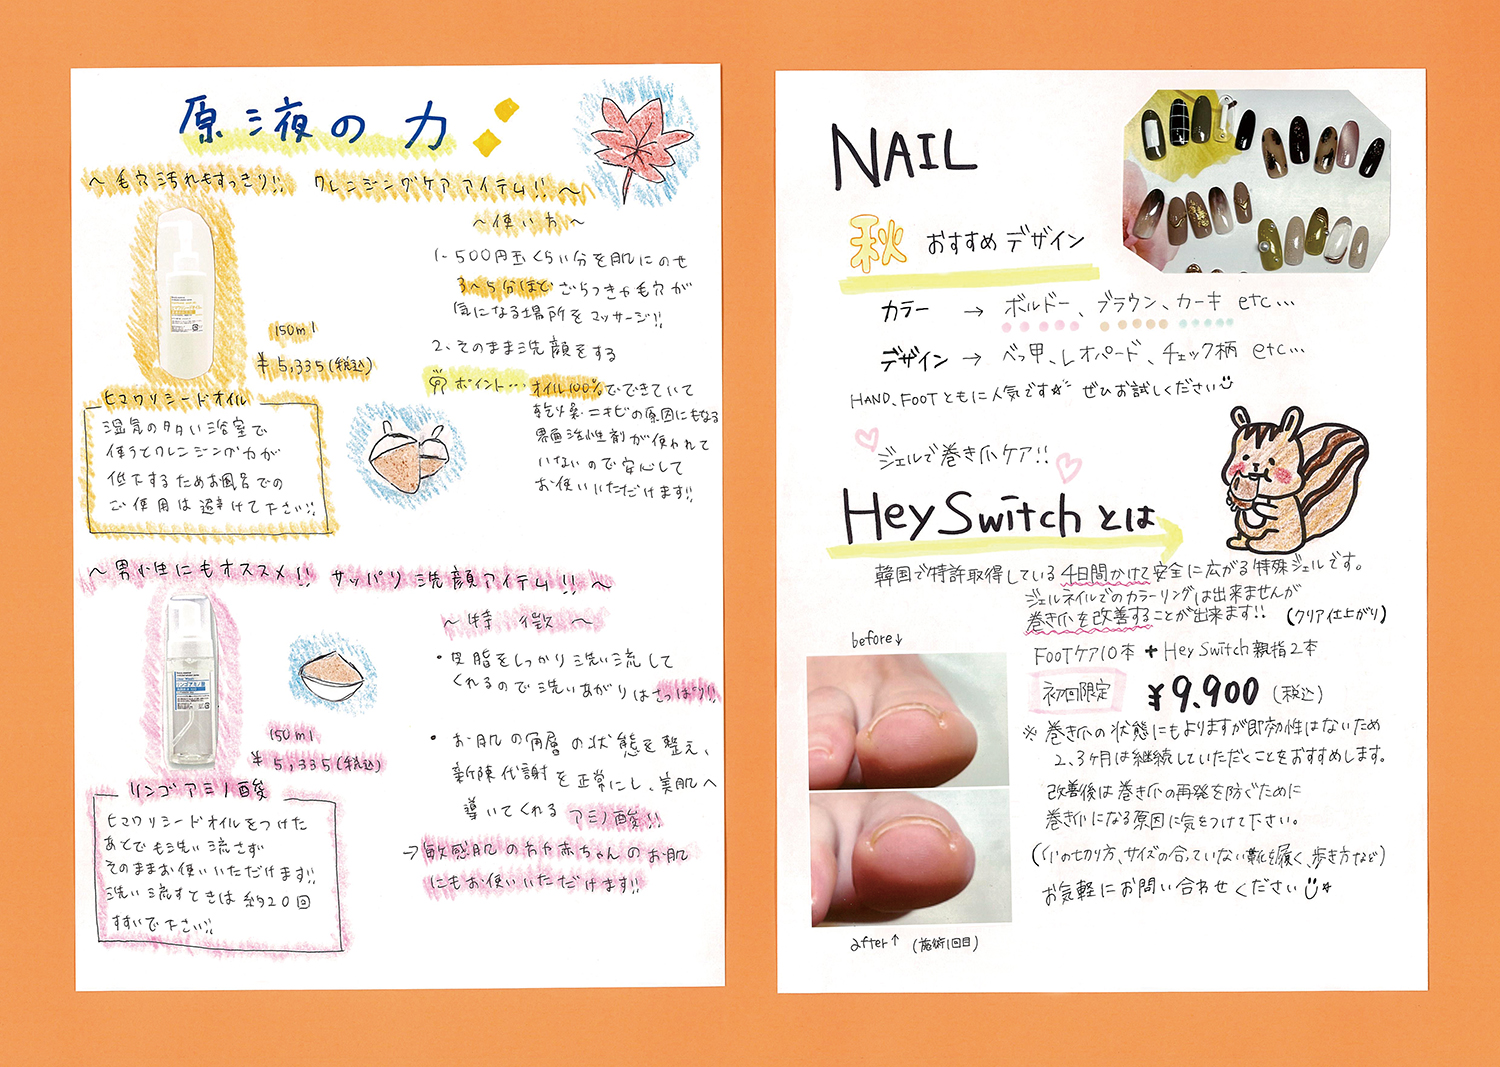 原液の力
～毛穴汚れもすっきり!! クレンジングケアアイテム!!～
150ml
¥5,335(税込)
ヒマワリシードオイル
湿気の多い浴室で
使うとクレンジング力が
低下するためお風呂での
ご使用は避けて下さい!!
～使い方～
1. 500円玉くらい分を肌にのせ
3～5分ほどざらつきや毛穴が
気になる場所をマッサージ!!
2、そのまま洗顔をする
ポイント… オイル100%でできていて
乾燥・ニキビの原因にもなる
界面活性剤が使われて
いないので安心して
お使いいただけます!!
～男性にもオススメ!! サッパリ洗顔アイテム!!～
150ml
¥5,335(税込)
リンゴアミノ酸
ヒマワリシードオイルをつけた
あとでも洗い流さず
そのままお使いいただけます!!
洗い流すときは約20回
すすいで下さい!!
～特徴～
・皮脂をしっかり洗い流して
くれるので洗いあがりはさっぱり!!
・お肌の角層の状態を整え、
新陳代謝を正常にし、美肌へ
導いてくれるアミノ酸!!
→敏感肌の方や赤ちゃんのお肌
にもお使いいただけます!!
NAIL
秋 おすすめデザイン
カラー → ボルドー、ブラウン、カーキ etc…
デザイン → べっ甲、レオパード、チェック柄 etc…
HAND、FOOTともに人気です☆ ぜひお試しください
ジェルで巻き爪ケア!!
Hey Switchとは
韓国で特許取得している4日間かけて安全に広がる特殊ジェルです。
ジェルネイルでのカラーリングは出来ませんが
巻き爪を改善することが出来ます!! (クリア仕上がり)
FOOTケア10本 + Hey Switch親指2本
初回限定 ¥9.900 (税込)
※巻き爪の状態にもよりますが即効性はないため
2、3ヶ月は継続していただくことをおすすめします。
改善後は巻き爪の再発を防ぐために
巻き爪になる原因に気をつけて下さい。
(爪の切り方、サイズの合っていない靴を履く、歩き方など)
お気軽にお問い合わせください
before↓
after↑ (施術1回目)